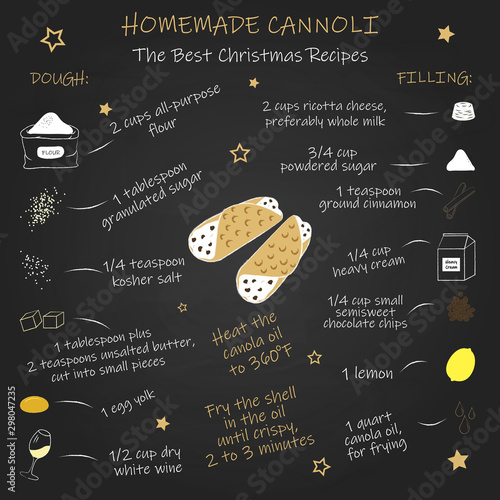 HOMEMADE CANNOLI
The Best Christmas Recipes
DOUGH:
2 cups all-purpose
flour
FLOUR
1 tablespoon
granulated sugar
1/4 teaspoon
kosher salt
1 tablespoon plus
2 teaspoons unsalted butter,
cut into small pieces
1 egg yolk
1/2 cup dry
white wine
Heat the
canola oil
to 360°F
Fry the shell
in the oil
until crispy,
2 to 3 minutes
FILLING:
2 cups ricotta cheese,
preferably whole milk
3/4 cup
powdered sugar
1 teaspoon
ground cinnamon
1/4 cup
heavy cream
Heavy
Cream
1/4 cup small
semisweet
chocolate chips
1 lemon
1 quart
canola oil,
for frying
Adobe Stock | #298047235